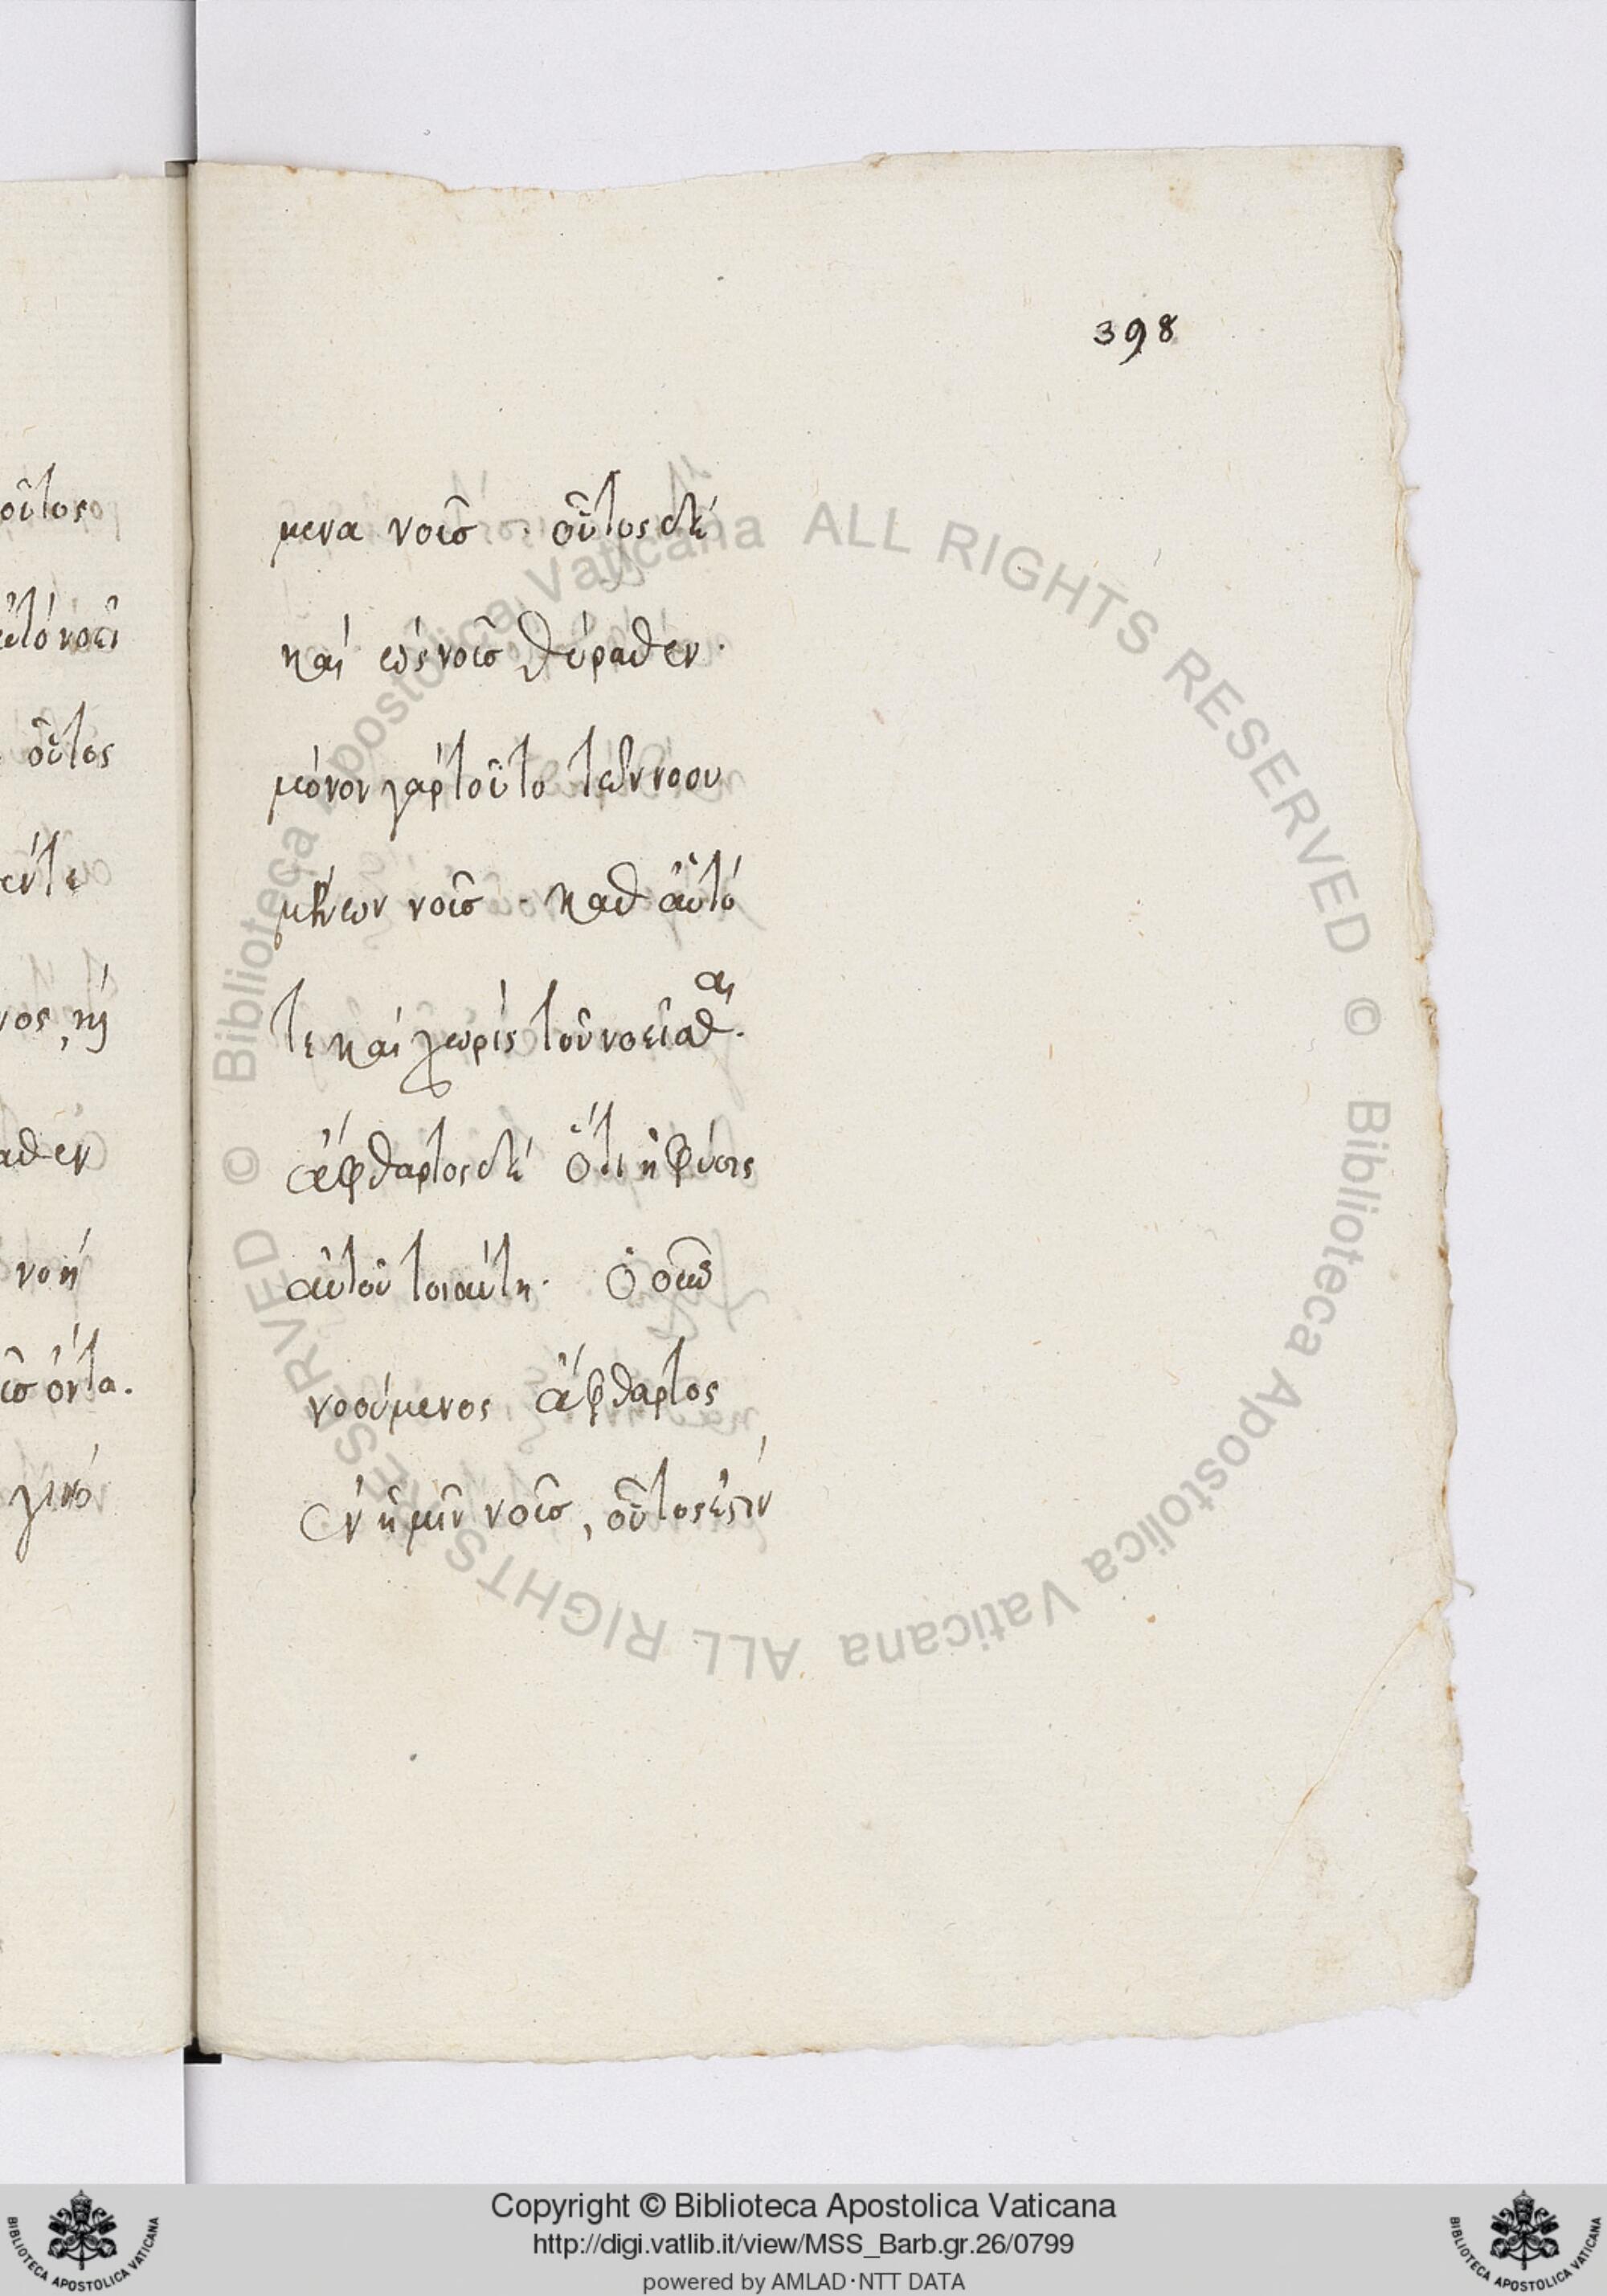 398
οὗτος
αὐτὸ νοεῖ
οὗτος
ντε
νος,
αθεν
νοη
ὄντα.
γινο
μενα νοῦσ · οὗτος δὲ
καὶ ὡς νοῦσ θύραθεν ·
μόνον γὰρ τοῦτο τῶν νοου
μένων νοῦσ · καθ αὑτό
τε καὶ χωρὶς τοῦ νοεῖσθαι ·
ἄφθαρτος δὲ ὅτι ἡ φύσις
αὐτοῦ τοιαύτη · ὁ οὖν
νοούμενος ἄφθαρτος
ἐν ἡμῖν νοῦσ, οὗτος ἐστιν
© Biblioteca Apostolica Vaticana ALL RIGHTS RESERVED © Biblioteca Apostolica Vaticana ALL RIGHTS RESERVED
Copyright © Biblioteca Apostolica Vaticana
http://digi.vatlib.it/view/MSS_Barb.gr.26/0799
powered by AMLAD·NTT DATA
BIBLIOTECA APOSTOLICA VATICANA
BIBLIOTECA APOSTOLICA VATICANA